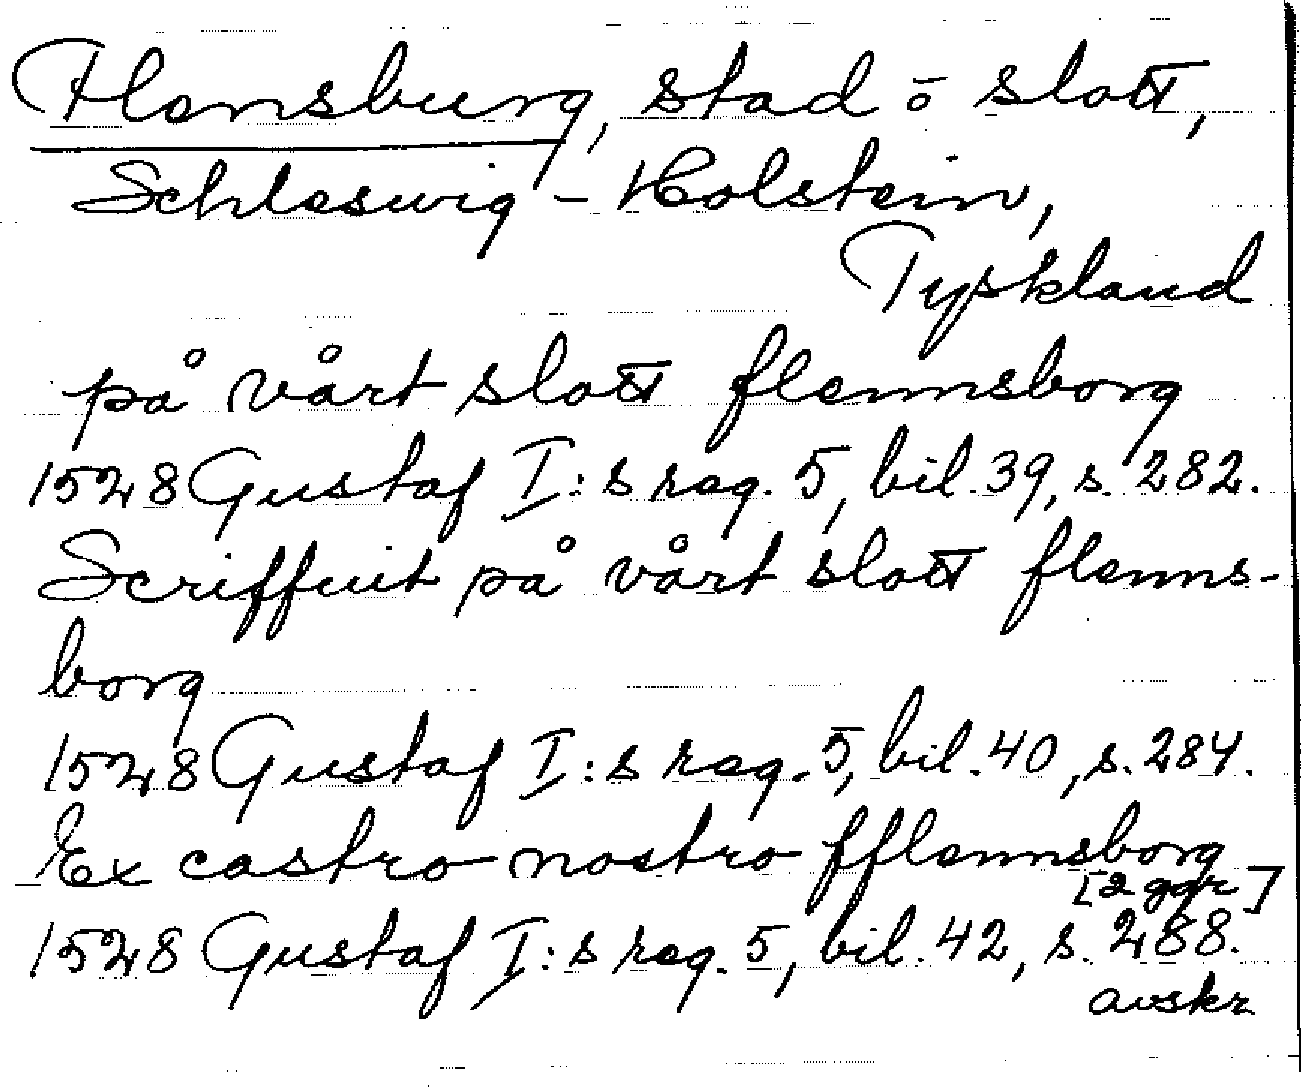 Flensburg, stad o slott,
Schleswig - Holstein,
Tyskland
på vårt slott flennsborg
1528 Gustaf I:s reg. 5, bil. 39, s. 282.
Scriffuit på vårt slott flenns-
borg
1528 Gustaf I:s reg. 5, bil. 40, s. 284.
Ex castro nostro fflennsborg
[2 ggr]
1528 Gustaf I:s reg. 5, bil. 42, s. 288.
avskr